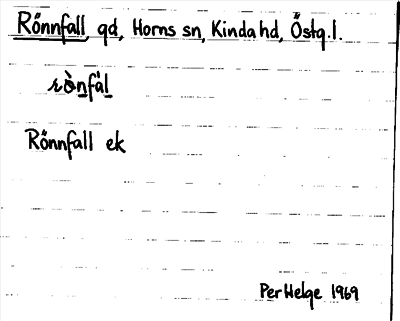 Rönnfall, gd, Horns sn, Kinda hd, Östg.l.
rònfàl
Rönnfall ek
Per Helge 1969